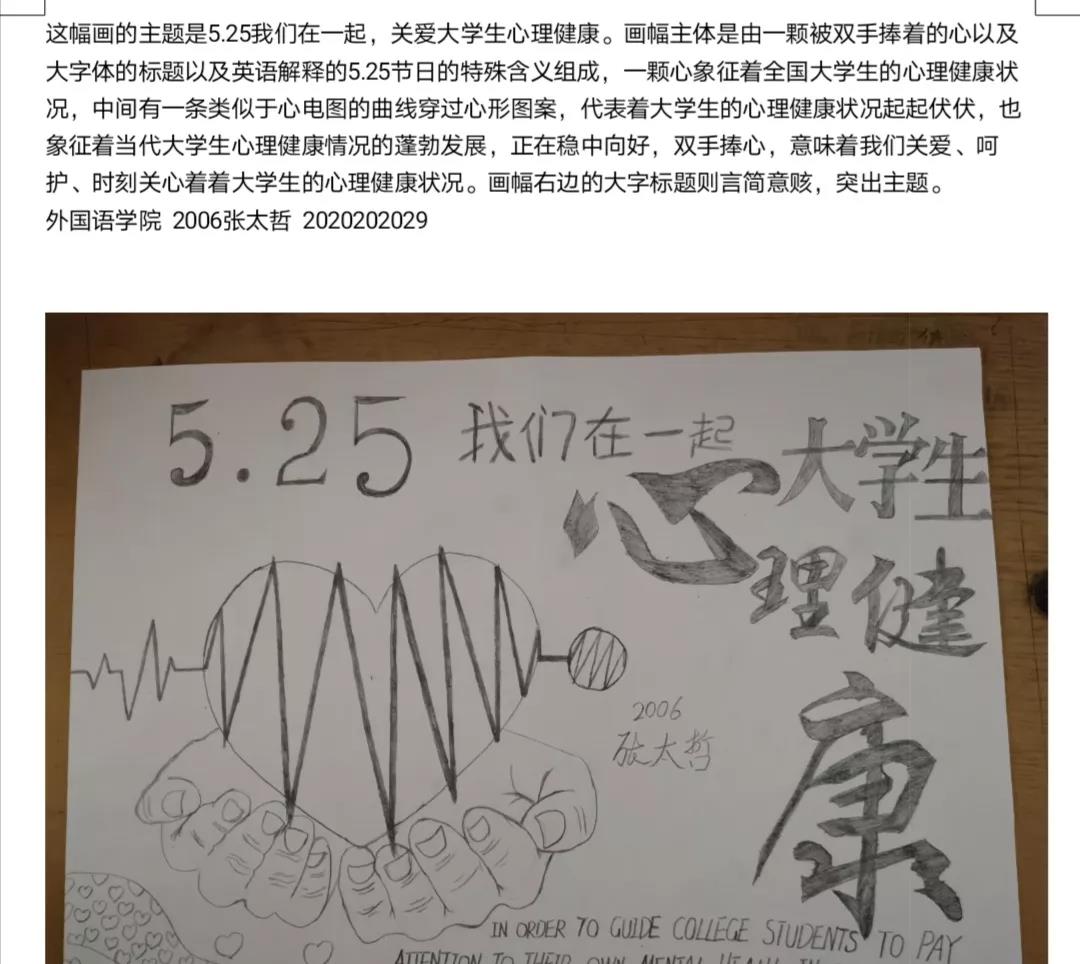 这幅画的主题是5.25我们在一起，关爱大学生心理健康。画幅主体是由一颗被双手捧着的心以及
大字体的标题以及英语解释的5.25节日的特殊含义组成，一颗心象征着全国大学生的心理健康状
况，中间有一条类似于心电图的曲线穿过心形图案，代表着大学生的心理健康状况起起伏伏，也
象征着当代大学生心理健康情况的蓬勃发展，正在稳中向好，双手捧心，意味着我们关爱、呵
护、时刻关心着着大学生的心理健康状况。画幅右边的大字标题则言简意赅，突出主题。
外国语学院 2006张太哲 2020202029
5.25 我们在一起
大学生
心理健
康
2006
张太哲
IN ORDER TO GUIDE COLLEGE STUDENTS TO PAY
ATTENTION TO THEIR OWN MENTAL HEALTH